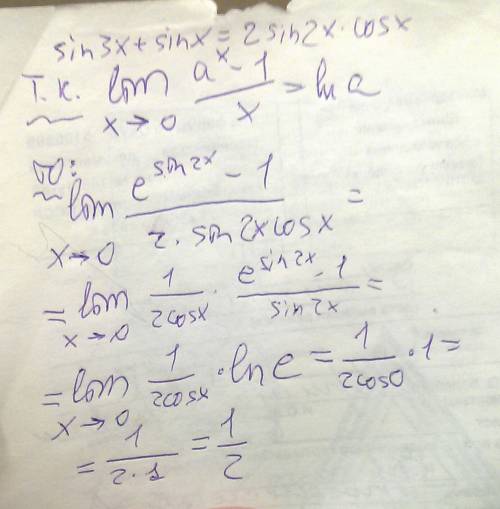 sin3x + sinx = 2sin2x·cosx
Т.К. lim (a^x - 1)/x = ln a
x→0
ТО:
lim (e^(sin2x) - 1)/(2·sin2x cosx) =
x→0
= lim 1/(2cosx) · (e^(sin2x) - 1)/(sin2x) =
x→0
= lim 1/(2cosx) · ln e = 1/(2cos0) · 1 =
x→0
= 1/(2·1) = 1/2